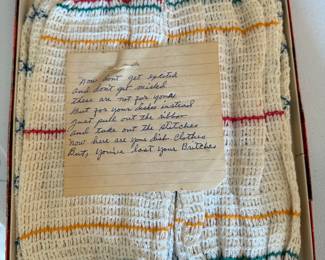 Now don't get excited
and don't get misled
these are not for you
But for your dishes instead
Just pull out the ribbon
and take out the stitches
Now here are your dish clothes
But, you've lost your Britches